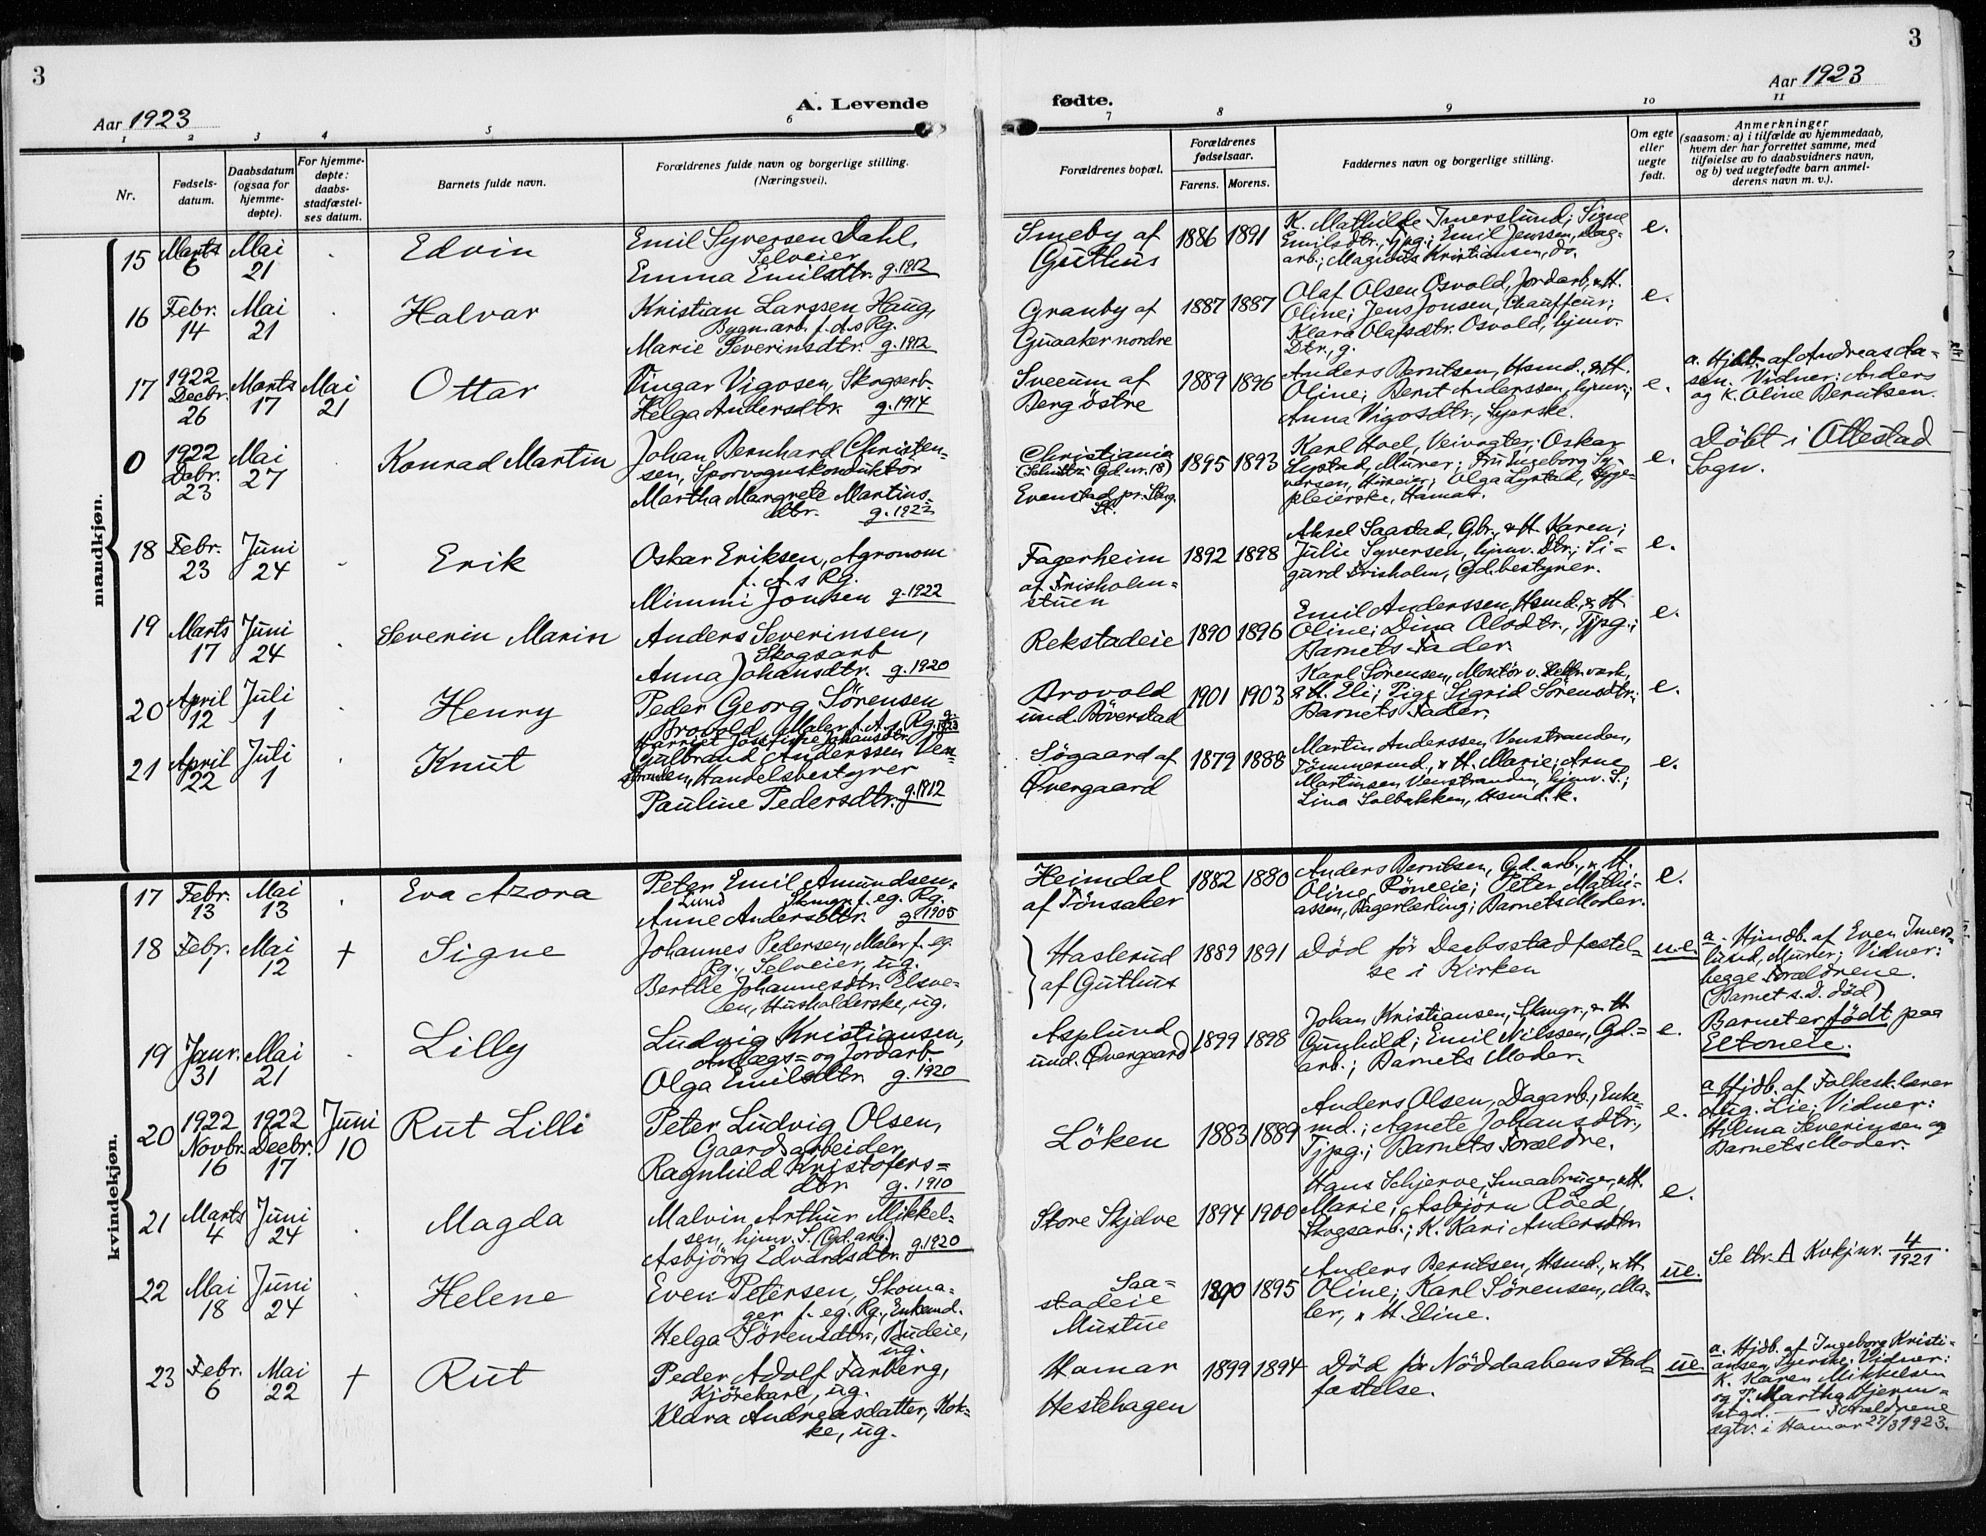 3
3
Aar 1923
A. Levende
fødte.
Aar 1923
1 2 3 4 5 6 7 8 9 10 11
Nr.
Fødsels-
datum.
Daabsdatum
(ogsaa for
hjemme-
døpte).
For hjemme-
døpte:
daabs-
stadfæstel-
ses datum.
Barnets fulde navn.
Forældrenes fulde navn og borgerlige stilling.
(Næringsvei).
Forældrenes bopæl.
Forældrenes
fødselsaar.
Farens. Morens.
Faddernes navn og borgerlige stilling.
Om egte
eller
uegte
født.
Anmerkninger
(saasom: a) i tilfælde av hjemmedaab,
hvem der har forrettet samme, med
tilføielse av to daabsvidners navn,
og b) ved uegtefødte barn anmel-
derens navn m. v.).
mandkjøn.
15 Marts 6 Mai 21 . Edvin
Emil Syversen Dahl,
Selveier
Emma Emilsdtr. g. 1912
Smeby af
Guthus
1886 1891
K. Mathilde Imerslund; Signe
Emilsdtr., Tjpg.; Emil Jenssen, Dag-
arb.; Magnus Kristiansen, do.
e.
16 Febr. 14 Mai 21 . Halvar
Kristian Larssen Haug,
Bygn.arb. f. A.s Rg.
Marie Severinsdtr. g. 1912
Granby af
Gaaker nordre
1887 1887
Olaf Olsen Osvold, Jordarb., & H.
Oline; Jens Jonsen, Chauffeur;
Klara Olafsdtr. Osvold, hjmv.
Dtr., g.
e.
17 1922 Decbr. 26 Marts 17 Mai 21 Ottar
Vingar Vigosen, Skogsarb.
Helga Andersdtr. g. 1914
Sveum af
Berg östre
1889 1896
Anders Berntsen, Hsmd., & H.
Oline; Berit Anderssen, hjmv.;
Anna Vigosdtr., Syerske.
e.
a. Hjdb. af Andreas Da-
sen. Vidner: Anders
og K. Oline Berntsen.
0 1922 Debr. 23 Mai 27 Konrad Martin
Johan Bernhard Christen-
sen, Sporvognskonduktör
Martha Margrete Martins-
dtr. g. 1922
Christiania
Evenstad pr.
St.
1895 1893
Karl Hoel, Veivogter; Oskar
Lystad, Murer; Fru Ingeborg Sy-
versen, Olga Lystad, Syge-
pleierske, Hamar.
e.
Döbt i Ottestad
Sogn.
18 Febr. 23 Juni 24 . Erik
Oskar Eriksen, Agronom
f. A.s Rg.
Mimmi Jonsen g. 1922
Fagerheim
af Frisholm-
stuen
1892 1898
Aksel Saastad, Gbr., & H. Karen;
Julie Syversen, hjmv. Dtr.; Si-
gurd Frisholm, Gd.bestyrer.
e.
19 Marts 17 Juni 24 . Severin Marin
Anders Severinsen,
Skogsarb
Anna Johansdtr. g. 1920
Rekstadeie
1890 1896
Emil Anderssen, Hsmd., & H.
Oline; Dina Olsdtr., Tjpg.;
Barnets Fader.
e.
20 April 12 Juli 1 . Henry
Peder Georg Sörensen
Brovold, Maler f. A.s Rg. g. 1923
Harriet Josefine Johansdtr.
Brovold
und. Böverstad
1901 1903
Karl Sörensen, Montör v. Elektr.verk,
& H. Eli; Pige Sigrid Sörensdtr.;
Barnets Fader.
e.
21 April 22 Juli 1 . Knut
Gulbrand Anderssen Ven-
stranden, Handelsbestyrer
Pauline Pedersdtr. g. 1912
Sögaard af
Övergaard
1879 1888
Martin Anderssen Venstranden,
Tömmermd., & H. Marie; Arne
Martinsen Venstranden, hjmv. S.;
Lina Solbakken, Hsmd. k.
e.
kvindekjøn.
17 Febr. 13 Mai 13 . Eva Azora
Peter Emil Amundsen
Lund Skmgr. f. eg. Rg.
Anne Andersdtr. g. 1905
Heimdal
af Tönsaker
1882 1880
Anders Berntsen, Gd. arb., & H.
Oline, Röneeie; Peter Mathi-
assen, Bagerlærling; Barnets Moder.
e.
18 Febr. 1 Mai 12 † Signe
Johannes Pedersen, Maler f. eg.
Rg., Selveier, ug.
Berthe Johannesdtr. Elsve-
en, Husholderske, ug.
Haslerud
af Guthus
1889 1891
Död för Daabsstadfæstel-
se i Kirken
u.e.
a. Hjmdb. af Even Imers-
lund, Murer; Vidner:
begge Forældrene.
(Barnet s. D. död)
19 Janr. 31 Mai 21 . Lilly
Ludvig Kristiansen,
Anlægs- og Jordarb.
Olga Emilsdtr. g. 1920
Asplund
und. Övergaard
1899 1898
Johan Kristiansen, Skmgr., & H.
Gunhild; Emil Nilssen, Gd.-
arb.; Barnets Moder.
e.
Barnet er födt paa
Eltoneie.
20 1922 Novbr. 16 1922 Decbr. 17 Juni 10 Rut Lilli
Peter Ludvig Olsen,
Gaardsarbeider
Ragnhild Kristofers-
dtr. g. 1910
Löken
1883 1889
Anders Olsen, Dagarb., Enke-
md.; Agnete Johansdtr.,
Tjpg.; Barnets Forældre.
e.
a. Hjdb. af Folkesk.lærer
Aug. Lie; Vidner:
Hilma Severinsen og
Barnets Moder.
21 Marts 4 Juni 24 . Magda
Malvin Arthur Mikkel-
sen, hjmv. S. (Gd. arb.)
Asbjörg Edvardsdtr. g. 1920
Store Skjelve
1894 1900
Hans Schjerve, Smaabruger, & H.
Marie; Asbjörn Röed,
Skogsarb.; K. Kari Andersdtr.
e.
22 Mai 18 Juni 24 . Helene
Even Petersen, Skoma-
ger f. eg. Rg., Enkemd.
Helga Sörensdtr., Budeie,
ug.
Saa-
stadeie
Mustue
1890 1895
Anders Berntsen, Hsmd., & H.
Oline; Karl Sörensen, Ma-
ler, & H. Eline.
ue.
Se ltr. A Kvkj nr. 4/1921.
23 Febr. 6 Mai 22 † Rut
Peder Adolf Farberg,
Kjörekarl, ug.
Klara Andreasdatter, Kok-
ke, ug.
Hamar
Hestehagen
1899 1894
Död för Nöddaabens Stad-
fæstelse.
ue.
a. Hjdb. af Ingeborg Kristi-
ansen, Syerske; Vidner:
K. Karen Mikkelsen
og T. Martha Hjerm-
stad. — Forældrene
ægtv. i Hamar 27/3 1923.